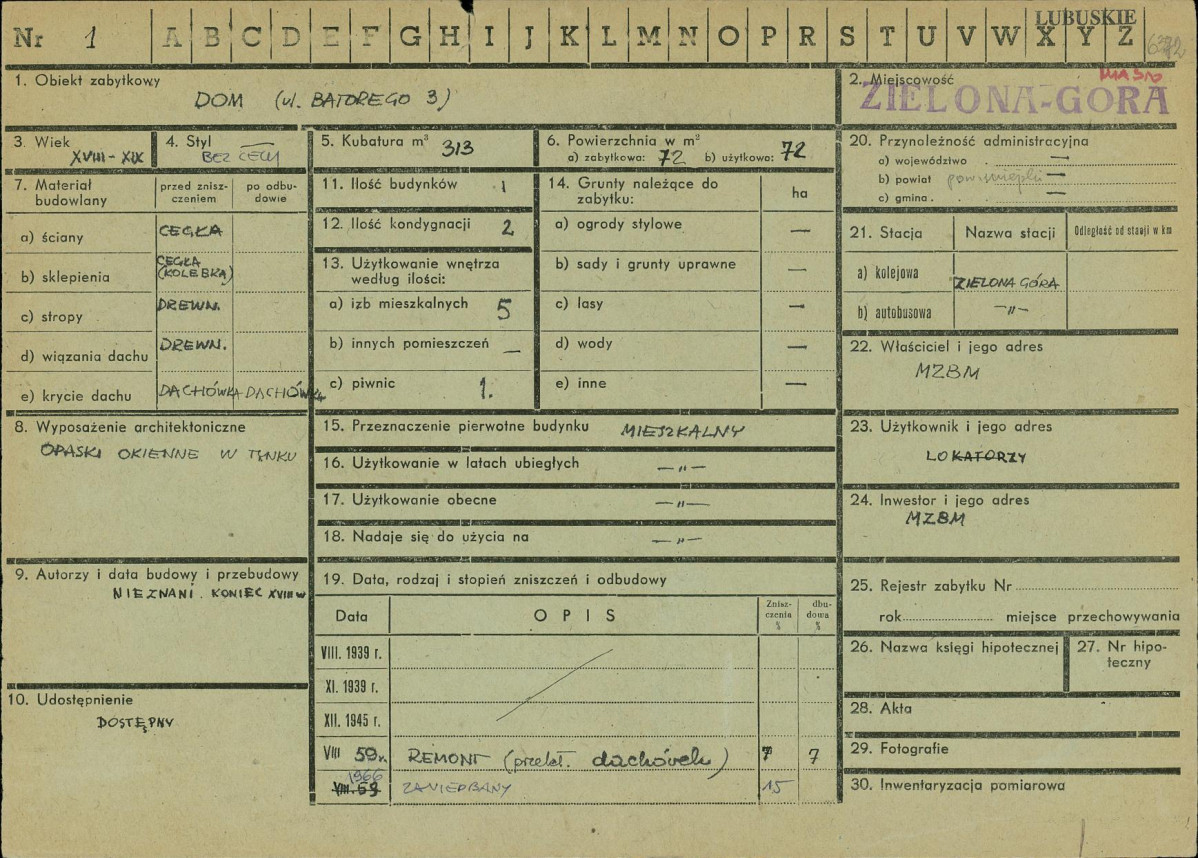 Nr 1 A B C D E F G H I J K L M N O P R S T U V W X Y Z
LUBUSKIE
1. Obiekt zabytkowy
DOM (ul. BATOREGO 3)
2. Miejscowość
ZIELONA-GÓRA
3. Wiek
XVIII - XIX
4. Styl
BEZ CECH
5. Kubatura m³ 313
6. Powierzchnia w m²
a) zabytkowa: 72 b) użytkowa: 72
7. Materiał budowlany
przed zniszczeniem
po odbudowie
a) ściany CEGŁA
b) sklepienia CEGŁA (KOLEBKA)
c) stropy DREWN.
d) wiązania dachu DREWN.
e) krycie dachu DACHÓWKA DACHÓWKA
8. Wyposażenie architektoniczne
OPASKI OKIENNE W TYNKU
9. Autorzy i data budowy i przebudowy
NIEZNANI. KONIEC XVIII w
10. Udostępnienie
DOSTĘPNY
11. Ilość budynków 1
12. Ilość kondygnacji 2
13. Użytkowanie wnętrza
według ilości:
a) izb mieszkalnych 5
b) innych pomieszczeń —
c) piwnic 1.
14. Grunty należące do
zabytku:
ha
a) ogrody stylowe —
b) sady i grunty uprawne —
c) lasy —
d) wody —
e) inne —
15. Przeznaczenie pierwotne budynku MIESZKALNY
16. Użytkowanie w latach ubiegłych —„—
17. Użytkowanie obecne —„—
18. Nadaje się do użycia na —„—
19. Data, rodzaj i stopień zniszczeń i odbudowy
Data OPIS Zniszczenia % dbudowa %
VIII. 1939 r.
XI. 1939 r.
XII. 1945 r.
VIII 59 r. REMONT (przekł. dachówek) 7 7
1966
VIII. 59 ZANIEDBANY 15
20. Przynależność administracyjna
a) województwo —
b) powiat —
c) gmina —
21. Stacja Nazwa stacji Odległość od stacji w km
a) kolejowa ZIELONA GÓRA
b) autobusowa —„—
22. Właściciel i jego adres
MZBM
23. Użytkownik i jego adres
LOKATORZY
24. Inwestor i jego adres
MZBM
25. Rejestr zabytku Nr
rok miejsce przechowywania
26. Nazwa księgi hipotecznej
27. Nr hipoteczny
28. Akta
29. Fotografie
30. Inwentaryzacja pomiarowa